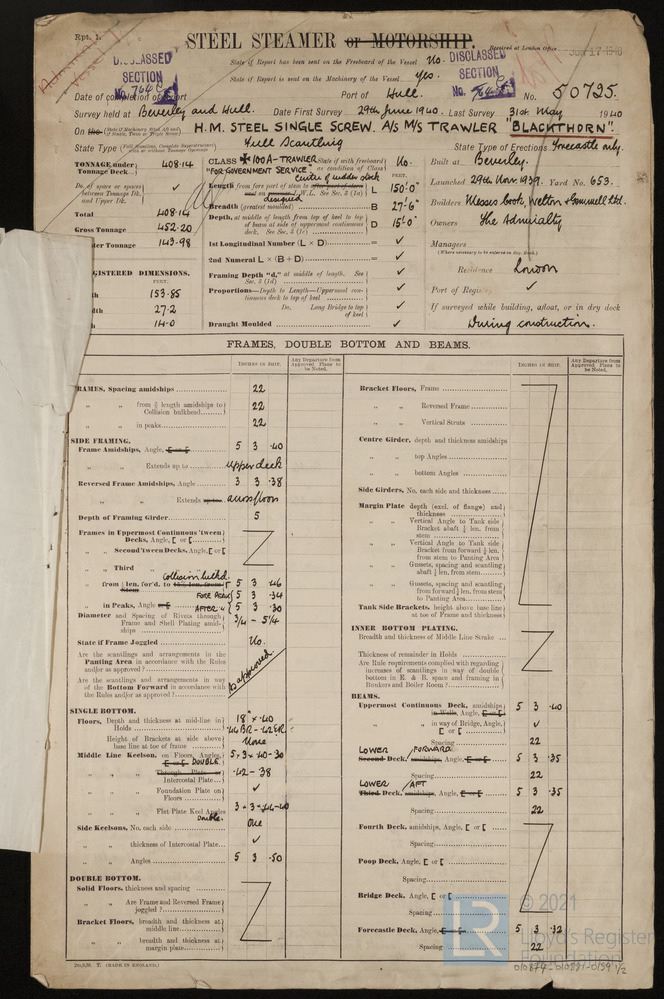 Rpt. 1.
STEEL STEAMER or MOTORSHIP.
Received at London Office
DISCLASSED SECTION No. 764
State if Report has been sent on the Freeboard of the Vessel No.
State if Report is sent on the Machinery of the Vessel Yes.
DISCLASSED SECTION
Date of completion of report Port of Hull. No. 50725.
Survey held at Beverley and Hull. Date First Survey 29th June 1940. Last Survey 31st May 1940
On the H.M. STEEL SINGLE SCREW. A/S M/S TRAWLER "BLACKTHORN".
State Type Full Scantling State Type of Erections Forecastle only.
TONNAGE under Tonnage Deck 408.14
Do. of space or spaces between Tonnage Dk. and Upper Dk. ✓
Total 408.14
Gross Tonnage 452.20
ter Tonnage 143.98
GISTERED DIMENSIONS.
FEET.
th 153.85
dth 27.2
h 14.0
CLASS +100A-TRAWLER State if with freeboard as condition of Class No.
"FOR GOVERNMENT SERVICE" centre of rudder stock
FEET.
Length from fore part of stem to after part of stern L 150'0"
Breadth (greatest moulded) B 27'-6"
Depth, at middle of length from top of keel to top of beam at side of uppermost continuous deck. See Sec. 3 (1c) D 15'-0"
1st Longitudinal Number (L × D) = ✓
2nd Numeral L × (B + D) = ✓
Framing Depth "d," at middle of length. See Sec. 3 (1d) ✓
Proportions—Depth to Length—Uppermost continuous deck to top of keel ✓
Do. Long Bridge to top of keel ✓
Draught Moulded ✓
Built at Beverley.
Launched 29th Nov 1939. Yard No. 653.
Builders Messrs Cook, Welton & Gemmell Ltd.
Owners The Admiralty
Managers
(Where necessary to be entered in Reg. Book.)
Residence London
Port of Registry ✓
If surveyed while building, afloat, or in dry dock
During construction.
FRAMES, DOUBLE BOTTOM AND BEAMS.
INCHES IN SHIP.
Any Departure from Approved Plans to be Noted.
RAMES, Spacing amidships 22
" " from ⅗ length amidships to Collision bulkhead 22
" " in peaks 22
SIDE FRAMING.
Frame Amidships, Angle, 5 3 .40
" " Extends up to upper deck
Reversed Frame Amidships, Angle 3 3 .38
" " Extends up to across floors
Depth of Framing Girder 5
Frames in Uppermost Continuous 'tween Decks, Angle, [ or [
" Second 'tween Decks, Angle, [ or [
" Third " " "
" from ⅗ len. for'd. to Collision bulkhd. 5 3 .46
FORE PEAK 5 3 .34
" in Peaks, Angle AFTER " 5 3 .30
Diameter and Spacing of Rivets through Frame and Shell Plating amidships 3/4 - 5 1/4
State if Frame Joggled No.
Are the scantlings and arrangements in the Panting Area in accordance with the Rules and/or as approved?
Are the scantlings and arrangements in way of the Bottom Forward in accordance with the Rules and/or as approved?
As approved.
SINGLE BOTTOM.
Floors, Depth and thickness at mid-line in Holds 18" × .40
.46 BR - .42 ER.
Height of Brackets at side above base line at toe of frame None
Middle Line Keelson, on Floors, Angles, DOUBLE 5 × 3 × 40-30
" " Through Plate or Intercostal Plate .42 - 38
" " Foundation Plate on Floors ✓
" " Flat Plate Keel Angles Double. 3 × 3 × 44-40
Side Keelsons, No. each side One
" " thickness of Intercostal Plate ✓
" " Angles 5 3 .50
DOUBLE BOTTOM.
Solid Floors, thickness and spacing
" " Are Frame and Reversed Frame joggled?
Bracket Floors, breadth and thickness at middle line
" " breadth and thickness at margin plate
INCHES IN SHIP.
Any Departure from Approved Plans to be Noted.
Bracket Floors, Frame
" " Reversed Frame
" " Vertical Struts
Centre Girder, depth and thickness amidships
" " top Angles
" " bottom Angles
Side Girders, No. each side and thickness
Margin Plate depth (excl. of flange) and thickness
" " Vertical Angle to Tank side Bracket abaft ¼ len. from stem
" " Vertical Angle to Tank side Bracket from forward ¼ len. from stem to Panting Area
" " Gussets, spacing and scantling abaft ¼ len. from stem
" " Gussets, spacing and scantling from forward ¼ len. from stem to Panting Area
Tank Side Brackets, height above base line at toe of Frame and thickness
INNER BOTTOM PLATING.
Breadth and thickness of Middle Line Strake
Thickness of remainder in Holds
Are Rule requirements complied with regarding increases of scantlings in way of double bottom in E. & B. space and framing in Bunkers and Boiler Room?
BEAMS.
Uppermost Continuous Deck, amidships in Wells, Angle, 5 3 .40
" " in way of Bridge, Angle, [ or [ ✓
Spacing 22
LOWER FORWARD
Second Deck, amidships, Angle, 5 3 .35
Spacing 22
LOWER AFT
Third Deck, amidships, Angle, 5 3 .35
Spacing 22
Fourth Deck, amidships, Angle, [ or [
Spacing
Poop Deck, Angle, [ or [
Spacing
Bridge Deck, Angle, [ or [
Spacing
Forecastle Deck, Angle, 5 3 .32
Spacing 22
(MADE IN ENGLAND.)
LR
© 2021
Lloyd's Register
Foundation
010874-010881-0159 1/2